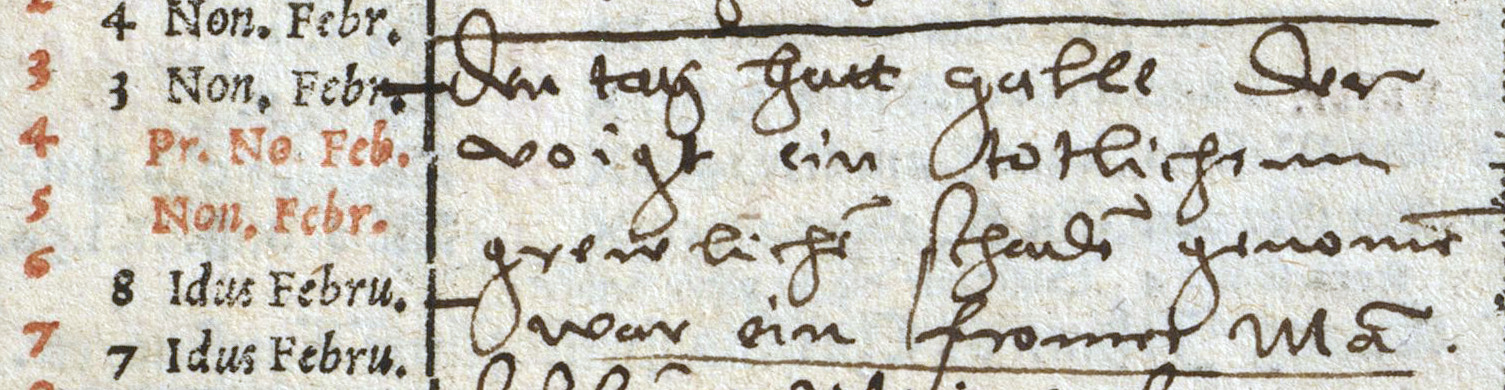 4 Non. Febr.
3 3 Non. Febr. den tag hatt galle der
4 Pr. No. Feb. voigt ein totlichenn
5 Non. Febr. grewlichē schadē genomē
6 8 Idus Febru.
war ein fromer Mā.
7 7 Idus Febru.